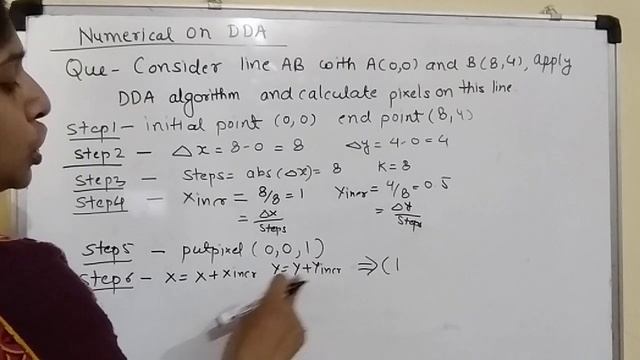 Numerical on DDA
Que- Consider line AB with A(0,0) and B(8,4), apply
DDA algorithm and calculate pixels on this line.
Step1 - initial point (0,0) end point (8,4)
Step2 - △x = 8-0 = 8 △y = 4-0 = 4
Step3 - Steps = abs(△x) = 8 K=8
Step4 - Xincr = 8/8 = 1 Yincr = 4/8 = 0.5
= △x/Steps = △y/Steps
Step5 - putpixel (0,0,1)
Step6 - X = X + Xincr Y = Y + Yincr ⇒ (1